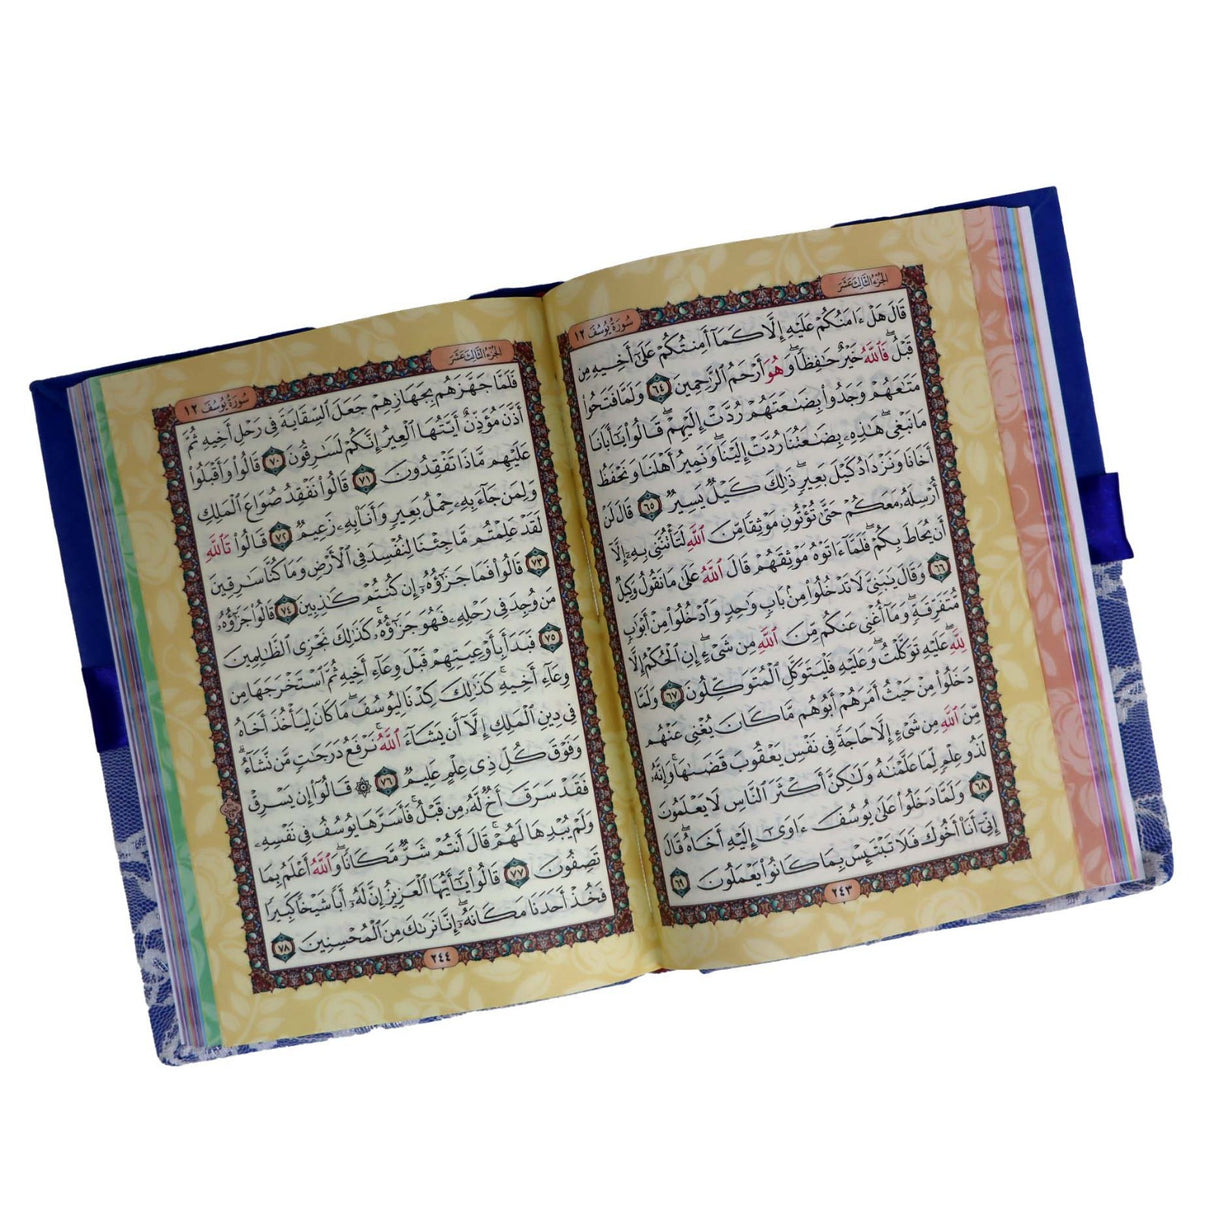 سُورَةُ يُوسُفَ ١٢
الجُزْءُ الثَّالِثَ عَشَرَ
قَالَ هَلْ ءَامَنُكُمْ عَلَيْهِ إِلَّا كَمَآ أَمِنتُكُمْ عَلَىٰٓ أَخِيهِ مِن
قَبْلُ فَٱللَّهُ خَيْرٌ حَٰفِظًا وَهُوَ أَرْحَمُ ٱلرَّٰحِمِينَ ٦٤ وَلَمَّا فَتَحُوا۟
مَتَٰعَهُمْ وَجَدُوا۟ بِضَٰعَتَهُمْ رُدَّتْ إِلَيْهِمْ قَالُوا۟ يَٰٓأَبَانَا
مَا نَبْغِى هَٰذِهِۦ بِضَٰعَتُنَا رُدَّتْ إِلَيْنَا وَنَمِيرُ أَهْلَنَا وَنَحْفَظُ
أَخَانَا وَنَزْدَادُ كَيْلَ بَعِيرٍ ذَٰلِكَ كَيْلٌ يَسِيرٌ ٦٥ قَالَ لَنْ
أُرْسِلَهُۥ مَعَكُمْ حَتَّىٰ تُؤْتُونِ مَوْثِقًا مِّنَ ٱللَّهِ لَتَأْتُنَّنِى بِهِۦٓ إِلَّآ
أَن يُحَاطَ بِكُمْ فَلَمَّآ ءَاتَوْهُ مَوْثِقَهُمْ قَالَ ٱللَّهُ عَلَىٰ مَا نَقُولُ وَكِيلٌ
٦٦ وَقَالَ يَٰبَنِىَّ لَا تَدْخُلُوا۟ مِنۢ بَابٍ وَٰحِدٍ وَٱدْخُلُوا۟ مِنْ أَبْوَٰبٍ
مُّتَفَرِّقَةٍ وَمَآ أُغْنِى عَنكُم مِّنَ ٱللَّهِ مِن شَىْءٍ إِنِ ٱلْحُكْمُ إِلَّا
لِلَّهِ عَلَيْهِ تَوَكَّلْتُ وَعَلَيْهِ فَلْيَتَوَكَّلِ ٱلْمُتَوَكِّلُونَ ٦٧ وَلَمَّا
دَخَلُوا۟ مِنْ حَيْثُ أَمَرَهُمْ أَبُوهُم مَّا كَانَ يُغْنِى عَنْهُم
مِّنَ ٱللَّهِ مِن شَىْءٍ إِلَّا حَاجَةً فِى نَفْسِ يَعْقُوبَ قَضَىٰهَا وَإِنَّهُۥ
لَذُو عِلْمٍ لِّمَا عَلَّمْنَٰهُ وَلَٰكِنَّ أَكْثَرَ ٱلنَّاسِ لَا يَعْلَمُونَ
٦٨ وَلَمَّا دَخَلُوا۟ عَلَىٰ يُوسُفَ ءَاوَىٰٓ إِلَيْهِ أَخَاهُ قَالَ
إِنِّىٓ أَنَا۠ أَخُوكَ فَلَا تَبْتَئِسْ بِمَا كَانُوا۟ يَعْمَلُونَ ٦٩
٢٤٣
سُورَةُ يُوسُفَ ١٢
الجُزْءُ الثَّالِثَ عَشَرَ
فَلَمَّا جَهَّزَهُم بِجَهَازِهِمْ جَعَلَ ٱلسِّقَايَةَ فِى رَحْلِ أَخِيهِ ثُمَّ
أَذَّنَ مُؤَذِّنٌ أَيَّتُهَا ٱلْعِيرُ إِنَّكُمْ لَسَٰرِقُونَ ٧٠ قَالُوا۟ وَأَقْبَلُوا۟
عَلَيْهِم مَّاذَا تَفْقِدُونَ ٧١ قَالُوا۟ نَفْقِدُ صُوَاعَ ٱلْمَلِكِ
وَلِمَن جَآءَ بِهِۦ حِمْلُ بَعِيرٍ وَأَنَا۠ بِهِۦ زَعِيمٌ ٧٢ قَالُوا۟ تَٱللَّهِ
لَقَدْ عَلِمْتُم مَّا جِئْنَا لِنُفْسِدَ فِى ٱلْأَرْضِ وَمَا كُنَّا سَٰرِقِينَ
٧٣ قَالُوا۟ فَمَا جَزَٰٓؤُهُۥٓ إِن كُنتُمْ كَٰذِبِينَ ٧٤ قَالُوا۟ جَزَٰٓؤُهُۥ
مَن وُجِدَ فِى رَحْلِهِۦ فَهُوَ جَزَٰٓؤُهُۥ كَذَٰلِكَ نَجْزِى ٱلظَّٰلِمِينَ
٧٥ فَبَدَأَ بِأَوْعِيَتِهِمْ قَبْلَ وِعَآءِ أَخِيهِ ثُمَّ ٱسْتَخْرَجَهَا مِن
وِعَآءِ أَخِيهِ كَذَٰلِكَ كِدْنَا لِيُوسُفَ مَا كَانَ لِيَأْخُذَ أَخَاهُ
فِى دِينِ ٱلْمَلِكِ إِلَّآ أَن يَشَآءَ ٱللَّهُ نَرْفَعُ دَرَجَٰتٍ مَّن نَّشَآءُ
وَفَوْقَ كُلِّ ذِى عِلْمٍ عَلِيمٌ ٧٦ ۞ قَالُوٓا۟ إِن يَسْرِقْ
فَقَدْ سَرَقَ أَخٌ لَّهُۥ مِن قَبْلُ فَأَسَرَّهَا يُوسُفُ فِى نَفْسِهِۦ
وَلَمْ يُبْدِهَا لَهُمْ قَالَ أَنتُمْ شَرٌّ مَّكَانًا وَٱللَّهُ أَعْلَمُ بِمَا
تَصِفُونَ ٧٧ قَالُوا۟ يَٰٓأَيُّهَا ٱلْعَزِيزُ إِنَّ لَهُۥٓ أَبًا شَيْخًا كَبِيرًا
فَخُذْ أَحَدَنَا مَكَانَهُۥٓ إِنَّا نَرَىٰكَ مِنَ ٱلْمُحْسِنِينَ ٧٨
٢٤٤